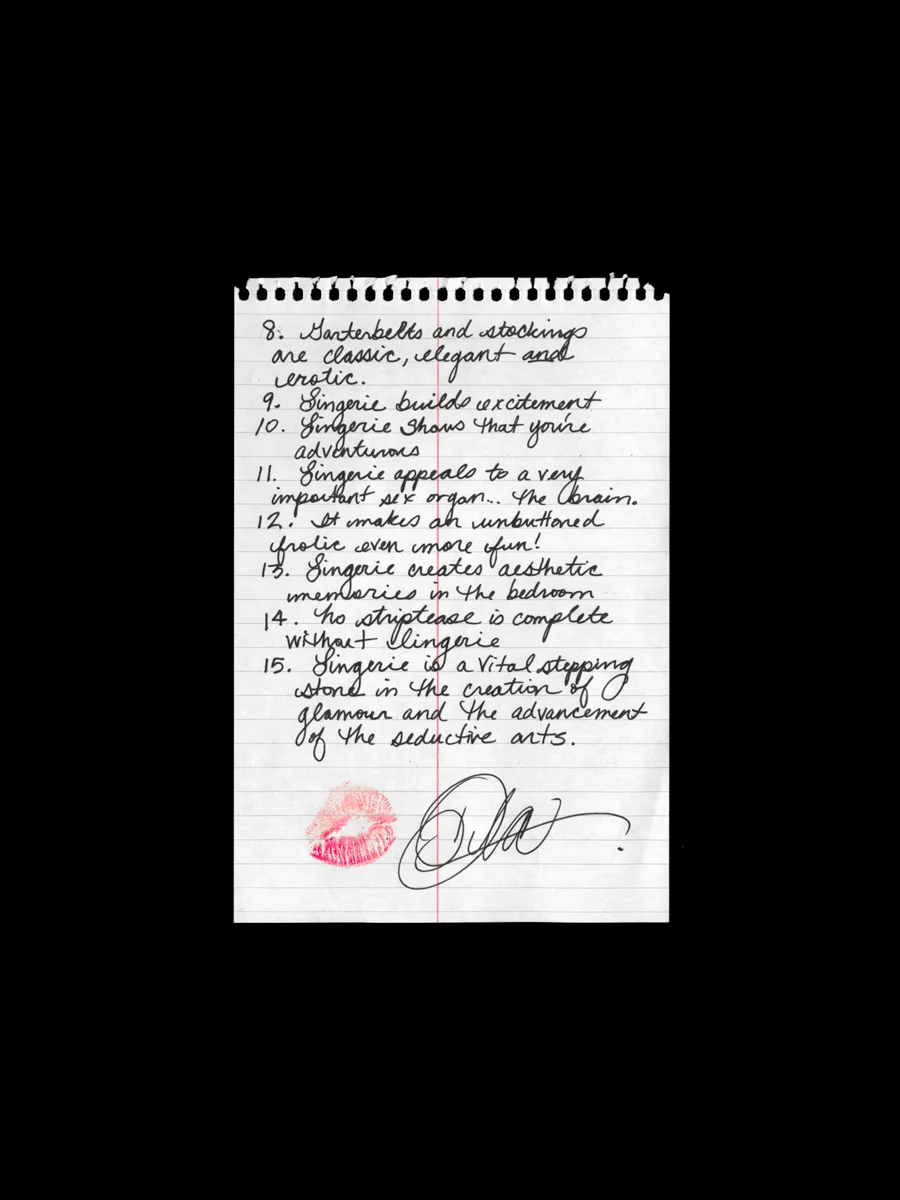 8. Garterbelts and stockings
are classic, elegant and
erotic.
9. Lingerie builds excitement
10. Lingerie shows that you're
adventurous
11. Lingerie appeals to a very
important sex organ... the brain.
12. It makes an unbuttoned
frolic even more fun!
13. Lingerie creates aesthetic
memories in the bedroom
14. No striptease is complete
without lingerie
15. Lingerie is a vital stepping
stone in the creation of
glamour and the advancement
of the seductive arts.